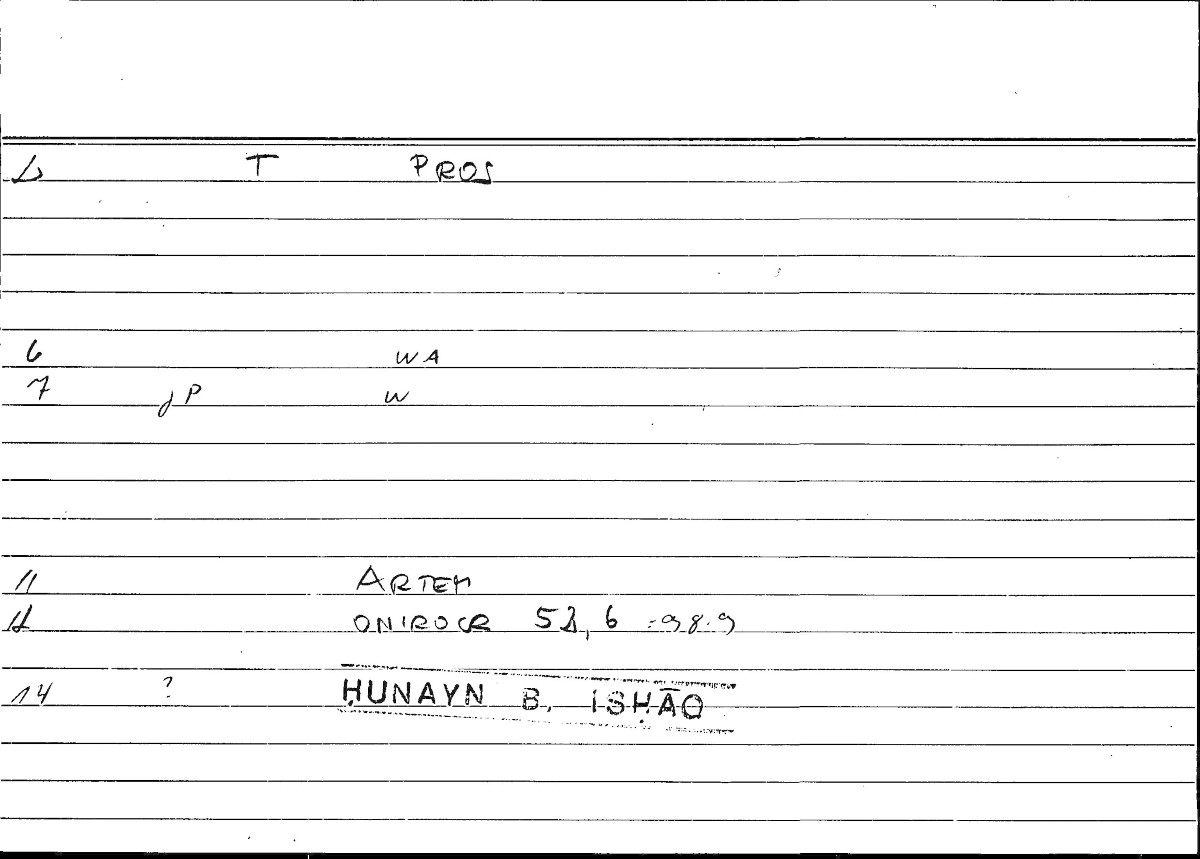 L T PROS
6 WA
7 JP W
11 ARTEM
12 ONIROCR 52, 6 =98.9
14 ? ḤUNAYN B. ISḤĀQ